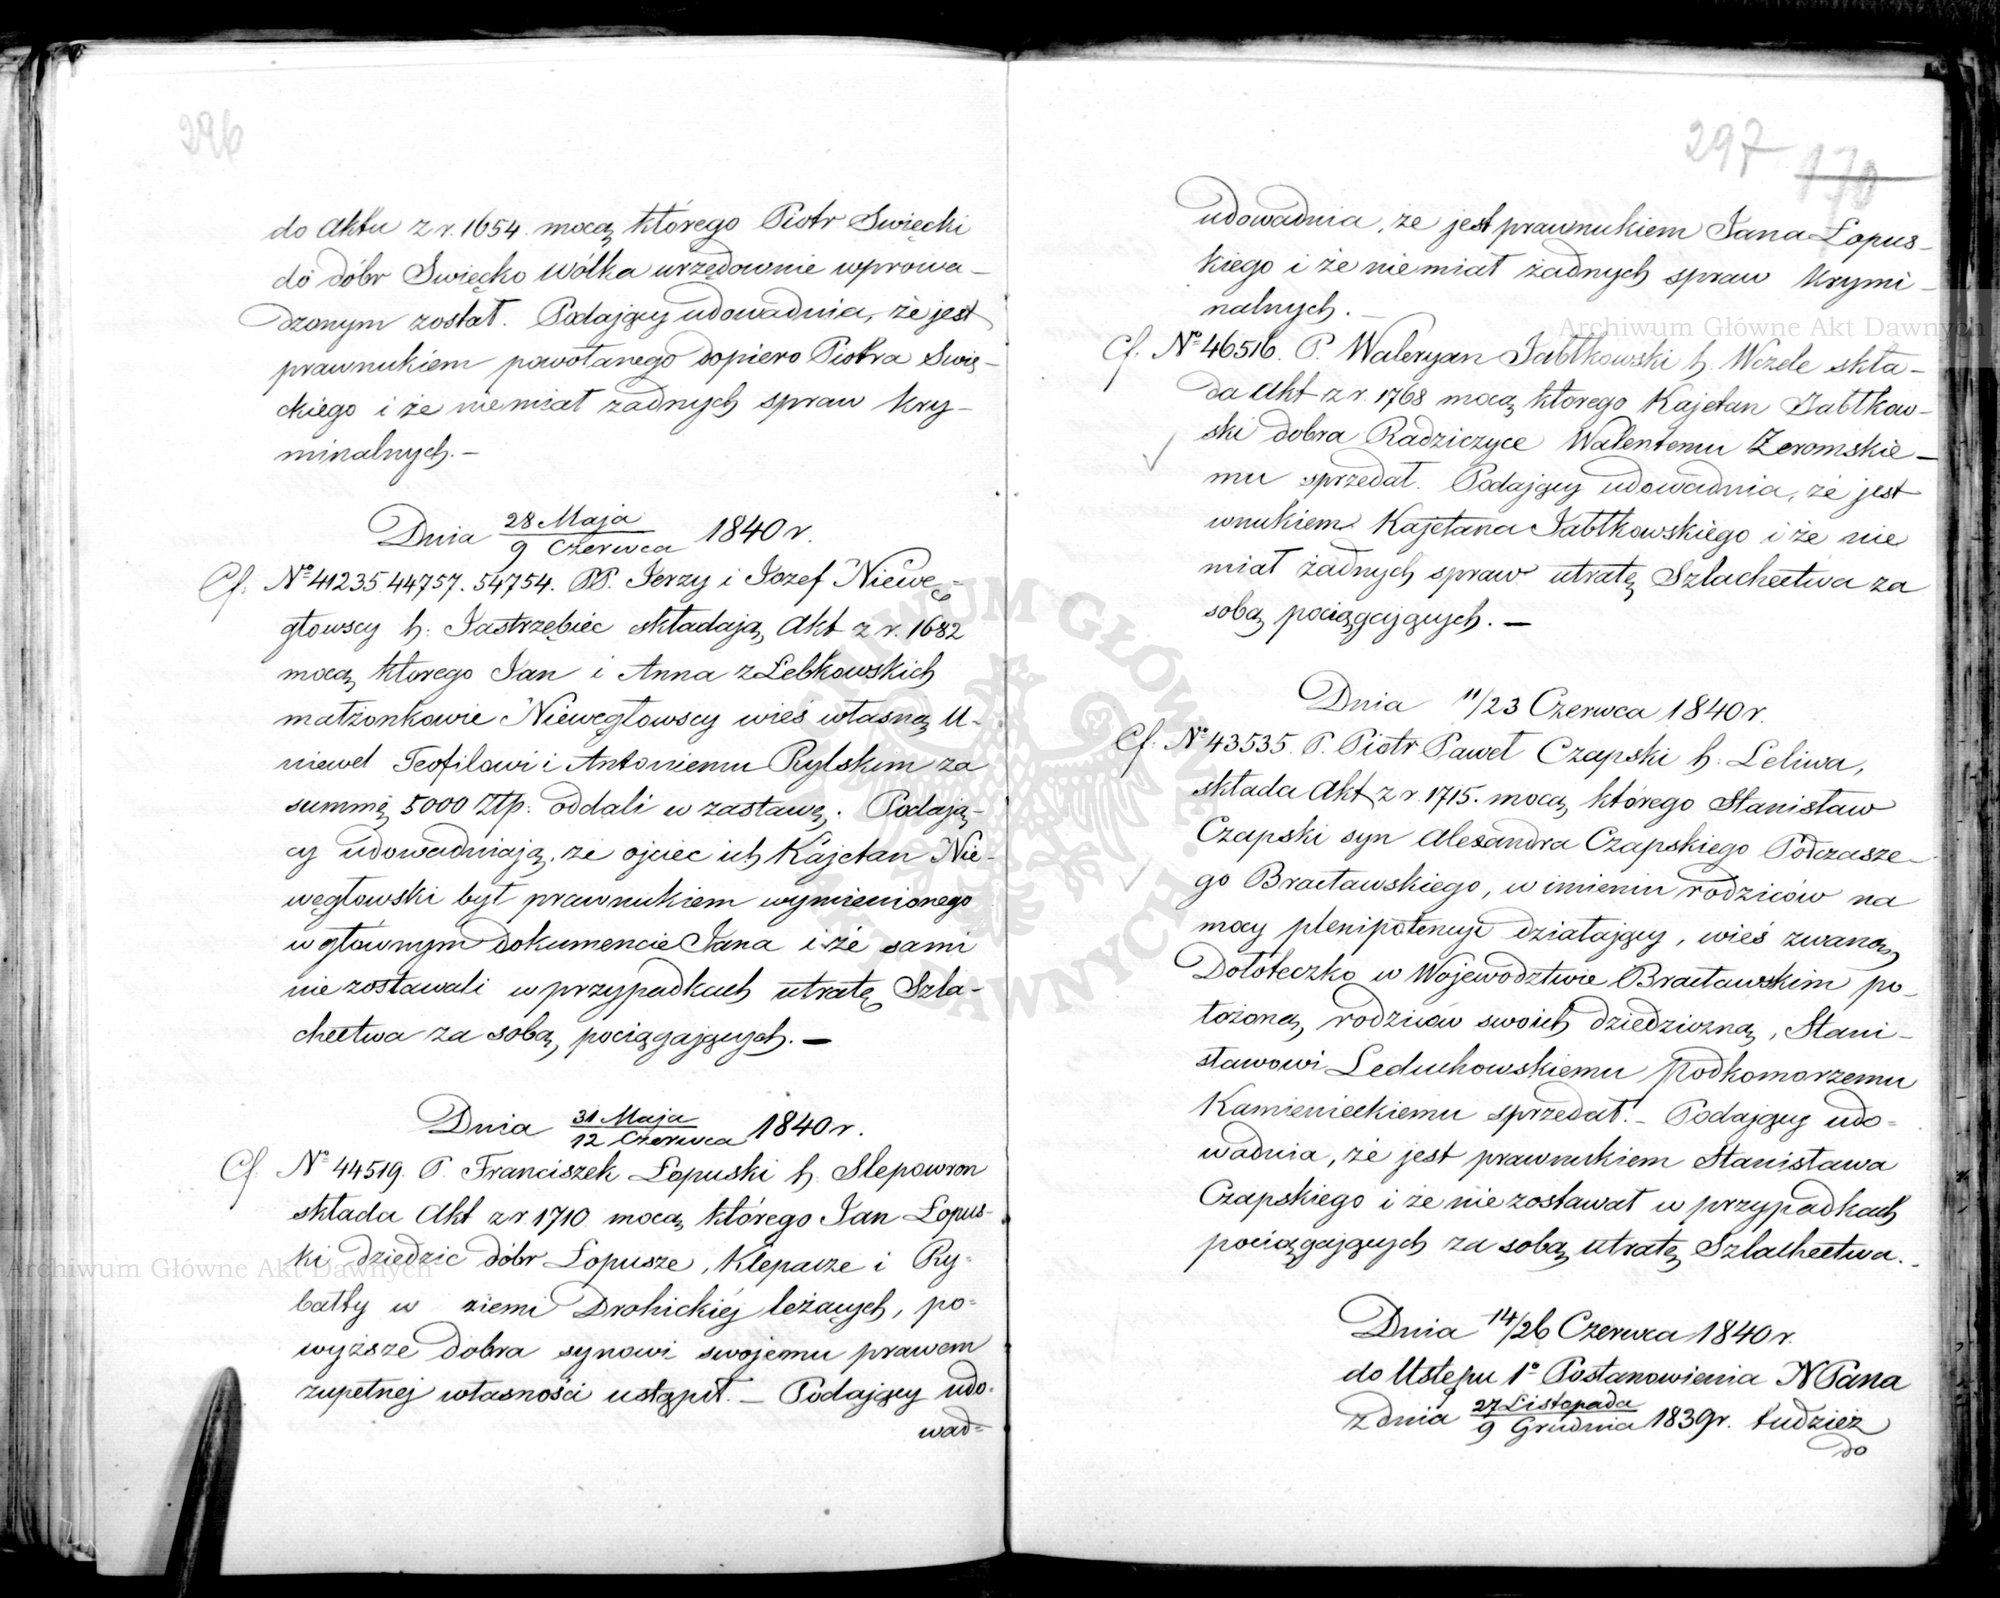 296
do Aktu z r. 1654 mocą którego Piotr Swięcki
do dóbr Swięcko Wólka urzędownie wprowa-
dzonym został. Podający udowadnia, że jest
prawnukiem powołanego dopiero Piotra Swię-
ckiego i że nie miał żadnych spraw kry-
minalnych.-
Dnia 28 Maja / 9 Czerwca 1840 r.
Cf. Nº 41235.44757.54754. PP. Jerzy i Jozef Niewę-
głowscy h. Jastrzębiec składają Akt z r. 1682
mocą ktorego Jan i Anna z Łebkowskich
małżonkowie Niewęgłowscy wieś własną U-
niewel Teofilowi i Antoniemu Rylskim za
summę 5000 Złp: oddali w zastawę. Podają-
cy udowadniają, że ojciec ich Kajetan Nie-
węgłowski był prawnukiem wymienionego
w głównym dokumencie Jana i że sami
nie zostawali w przypadkach utratę Szla-
chectwa za sobą pociągających.-
Dnia 31 Maja / 12 Czerwca 1840 r.
Cf. Nº 44519. P. Franciszek Łopuski h. Slepowron
składa Akt z r. 1710 mocą którego Jan Łopus-
ki dziedzic dóbr Łopusze, Klepacze i Ry-
bałty w ziemi Drohickiéj leżących, po-
wyższe dobra synowi swojemu prawem
zupełnej własności ustąpił.- Podający udo-
wad-
297 170
udowadnia, że jest prawnukiem Jana Łopus-
kiego i że nie miał żadnych spraw krymi-
nalnych.-
Cf. Nº 46516. P. Waleryan Jabłkowski h. Wczele skła-
da Akt z r. 1768 mocą ktorego Kajetan Jabłkow-
ski dobra Radziczyce Walentemu Żeromskie-
mu sprzedał. Podający udowadnia, że jest
wnukiem Kajetana Jabłkowskiego i że nie
miał żadnych spraw utratę Szlachectwa za
sobą pociągających.-
Dnia 11/23 Czerwca 1840 r.
Cf. Nº 43535. P. Piotr Paweł Czapski h. Leliwa,
składa Akt z r. 1715. mocą którego Stanisław
Czapski syn Alexandra Czapskiego Podczasze-
go Bracławskiego, w imieniu rodziców na
mocy plenipotencyi działający, wieś zwaną
Dołoteczko w Województwie Bracławskim po-
łożoną, rodziców swoich dziedziczną, Stani-
sławowi Leduchowskiemu Podkomorzemu
Kamienieckiemu sprzedał.- Podający udo-
wadnia, że jest prawnukiem Stanisława
Czapskiego i że nie zostawał w przypadkach
pociągających za sobą utratę Szlachectwa.-
Dnia 14/26 Czerwca 1840 r.
do Ustępu 1º Postanowienia N Pana
z dnia 27 Listopada / 9 Grudnia 1839 r. tudzież
do
Archiwum Główne Akt Dawnych
Archiwum Główne Akt Dawnych
ARCHIWUM GŁÓWNE AKT DAWNYCH